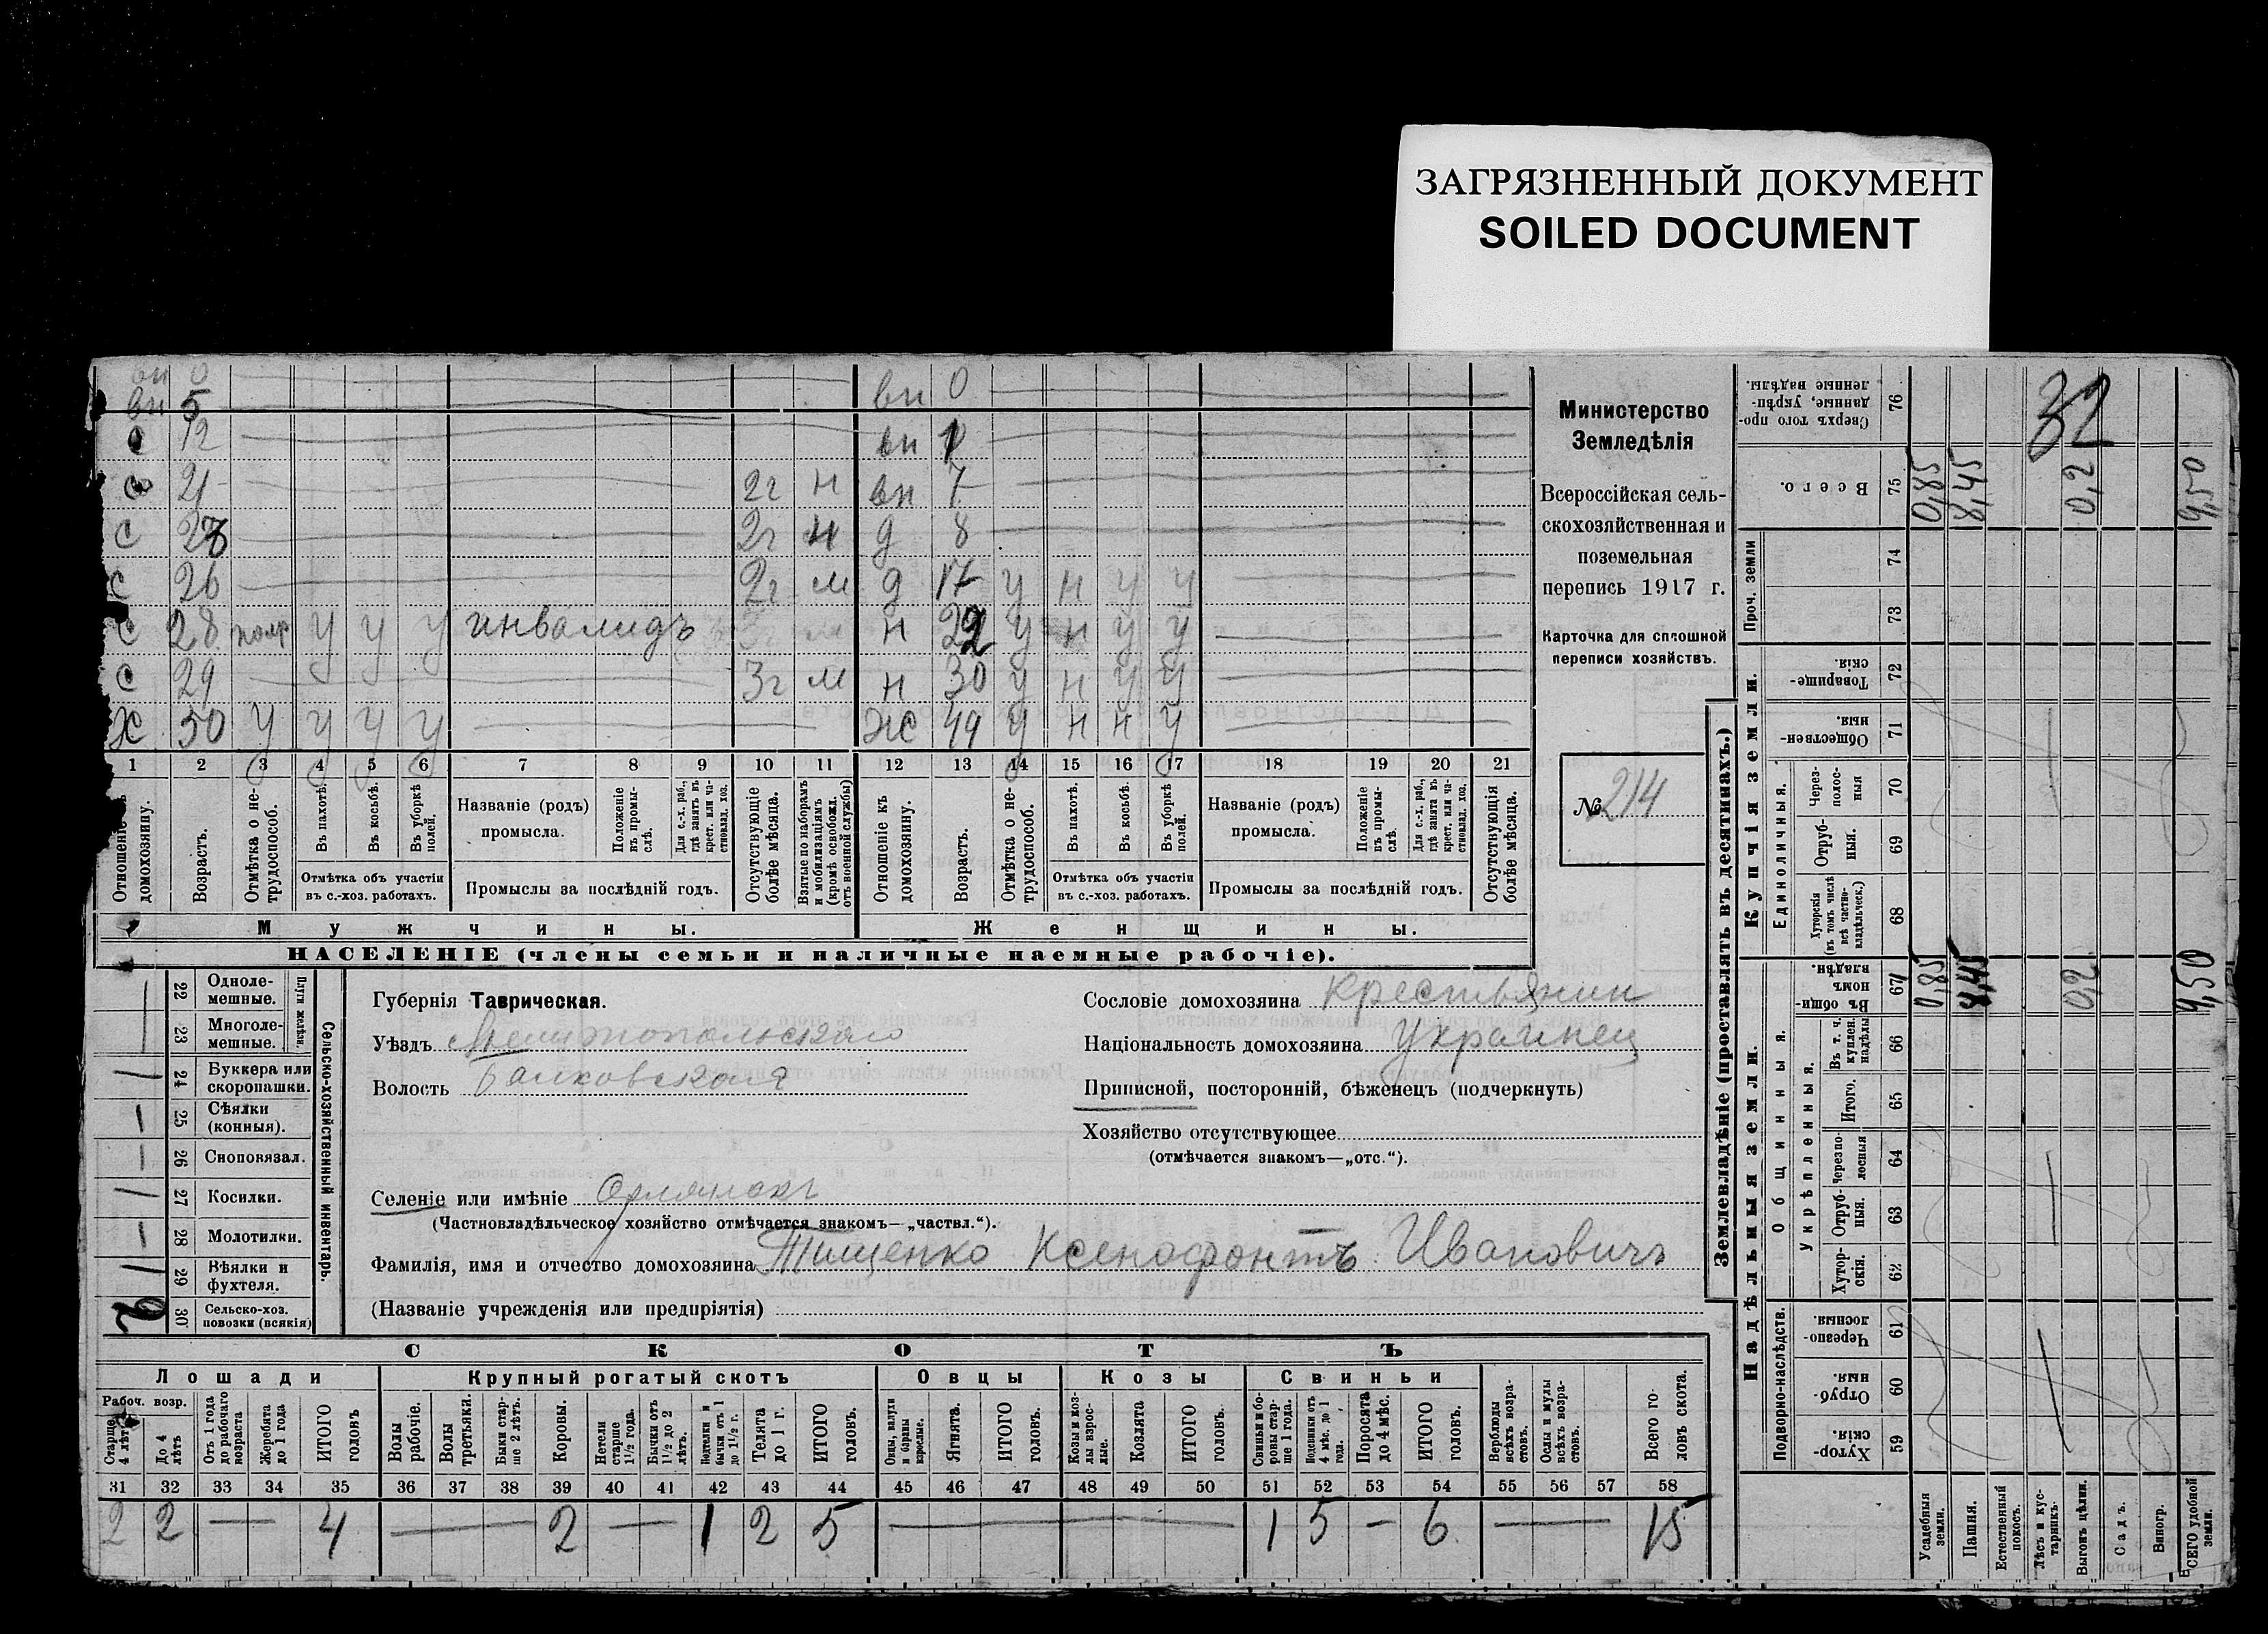 ЗАГРЯЗНЕННЫЙ ДОКУМЕНТ
SOILED DOCUMENT
вн 0 вн 0
вн 5
с 12 вн
с 21 2г н вн 7
с 2г н д 8
с 26 2г м д 17 у н у у
с 28 полр у у у инвалидъ 3г м н у н у у
с 29 3г м н 30 у н у у
Х 50 у у у у ж 49 у н н у
1 2 3 4 5 6 7 8 9 10 11 12 13 14 15 16 17 18 19 20 21
Отношеніе къ домохозяину.
Возрастъ.
Отмѣтка о не-трудоспособ.
Въ пахотѣ.
Въ косьбѣ.
Въ уборкѣ полей.
Отмѣтка объ участіи
въ с.-хоз. работахъ.
Названіе (родъ)
промысла.
Положеніе въ промы-слѣ.
Для с.-х. раб., гдѣ занятъ въ крест. или ча-стновлад. хоз.
Промыслы за послѣдній годъ.
Отсутствующіе болѣе мѣсяца.
Взятые по наборамъ и мобилизаціямъ (кромѣ освобожд. отъ военной службы)
Отношеніе къ домохозяину.
Возрастъ.
Отмѣтка о не-трудоспособ.
Въ пахотѣ.
Въ косьбѣ.
Въ уборкѣ полей.
Отмѣтка объ участіи
въ с.-хоз. работахъ.
Названіе (родъ)
промысла.
Положеніе въ промы-слѣ.
Для с.-х. раб., гдѣ занята въ крест. или ча-стновлад. хоз.
Промыслы за послѣдній годъ.
Отсутствующія болѣе мѣсяца.
Мужчины.
Женщины.
НАСЕЛЕНІЕ (члены семьи и наличные наемные рабочіе).
Министерство
Земледѣлія
Всероссійская сель-
скохозяйственная и
поземельная
перепись 1917 г.
Карточка для сплошной
переписи хозяйствъ.
№ 214
Сельско-хозяйственный инвентарь.
Плуги желѣзн.
22 Одноле-мешные.
23 Многоле-мешные.
24 Буккера или скоропашки.
25 Сѣялки (конныя).
26 Сноповязал.
27 Косилки.
28 Молотилки.
29 Вѣялки и фухтеля.
30 Сельско-хоз. повозки (всякія)
Губернія Таврическая.
Уѣздъ Мелитопольскаго
Волость Балковская
Сословіе домохозяина Крестьянин
Національность домохозяина Украинец
Приписной, посторонній, бѣженецъ (подчеркнуть)
Хозяйство отсутствующее
(отмѣчается знакомъ—„отс.“).
Селеніе или имѣніе Орлянскъ
(Частновладѣльческое хозяйство отмѣчается знакомъ—„частвл.“).
Фамилія, имя и отчество домохозяина Тищенко Ксенофонтъ Ивановичъ
(Названіе учрежденія или предпріятія)
СКОТЪ
Лошади Крупный рогатый скотъ Овцы Козы Свиньи
Рабоч. возр.
Старше 4 лѣтъ
До 4 лѣтъ
Отъ 1 года до рабочаго возраста
Жеребята до 1 года
ИТОГО головъ
Волы рабочіе.
Волы третьяки.
Быки стар-ше 2 лѣтъ.
Коровы.
Нетели старше 1½ года.
Бычки отъ 1½ до 2 лѣтъ.
Подтелки и бычки отъ 1 до 1½ г.
Телята до 1 г.
ИТОГО головъ.
Овцы, валухи и бараны взрослые.
Ягнята.
ИТОГО головъ.
Козы и коз-лы взрос-лые.
Козлята
ИТОГО головъ.
Свиньи и бо-ровы стар-ше 1 года.
Подсвинки отъ 4 мѣс. до 1 года.
Поросята до 4 мѣс.
ИТОГО головъ.
Верблюды всѣхъ возра-стовъ.
Ослы и мулы всѣхъ возра-стовъ.
Всего го-ловъ скота.
31 32 33 34 35 36 37 38 39 40 41 42 43 44 45 46 47 48 49 50 51 52 53 54 55 56 57 58
2 2 — 4 — 2 — 1 2 5 — 1 5 — 6 — 15
Землевладѣніе (проставлять въ десятинахъ.)
Надѣльныя земли.
Купчія земли.
Проч. земли
Подворно-наслѣдств.
Общинныя.
Укрѣпленныя.
Единоличныя.
Хутор-скія. 59
Отруб-ныя. 60
Черезпо-лосныя. 61
Хутор-скія. 62
Отруб-ныя. 63
Черезпо-лосныя 64
Итого. 65
Въ т. ч. куплен. надѣлы 66
Въ общин-номъ владѣн. 67
Хуторскія (въ томъ числѣ всѣ частно-владѣльческ.) 68
Отруб-ныя. 69
Через-полос-ныя 70
Обществен-ныя. 71
Товарище-скія. 72
73
74
Всего. 75
Сверхъ того про-данные, укрѣп-ленные надѣлы. 76
Усадебныя земли. 0,85 0,85
Пашня. 8,45
Естественный покосъ.
Лѣсъ и кус-тарникъ.
Выгонъ цѣлин. 0,2 0,2
Садъ.
Виногр.
ВСЕГО удобной земли. 9,50 9,50
32